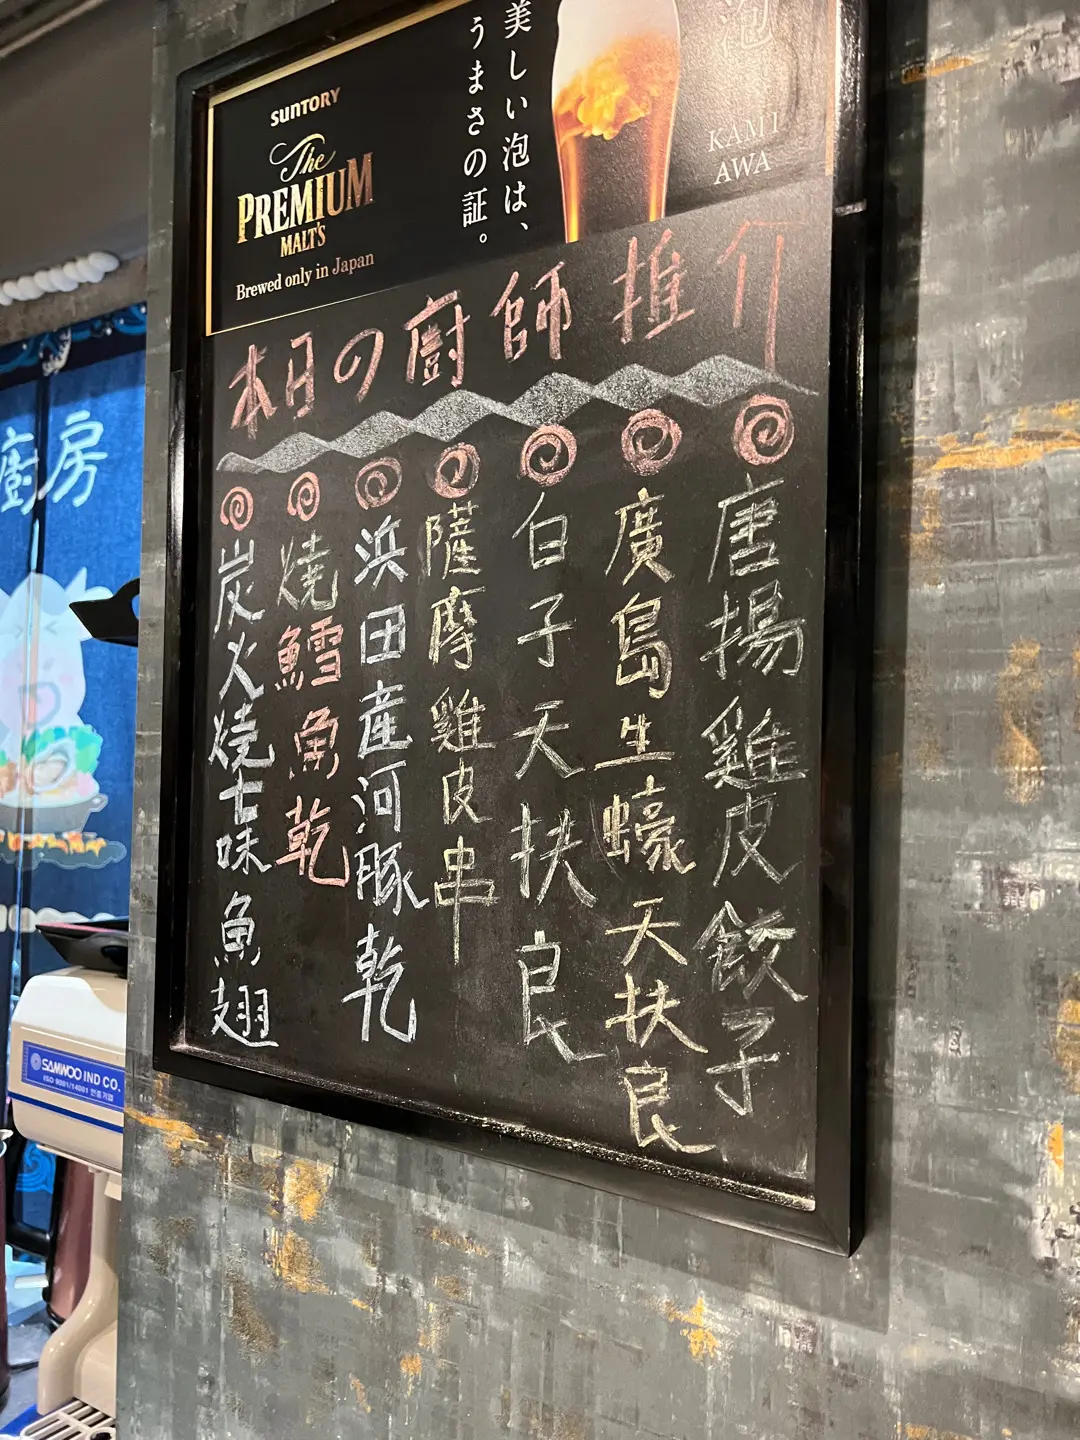 SUNTORY
The
PREMIUM
MALT'S
Brewed only in Japan
美しい泡は、
うまさの証。
泡
KAMI
AWA
本日の廚師推介
唐揚雞皮餃子
廣島生蠔天扶良
白子天扶良
薩摩雞皮串
浜田産河豚乾
燒鱈魚乾
炭火燒七味魚翅
廚房
SAMWOO IND CO.
ISO 9001/14001 인증기업